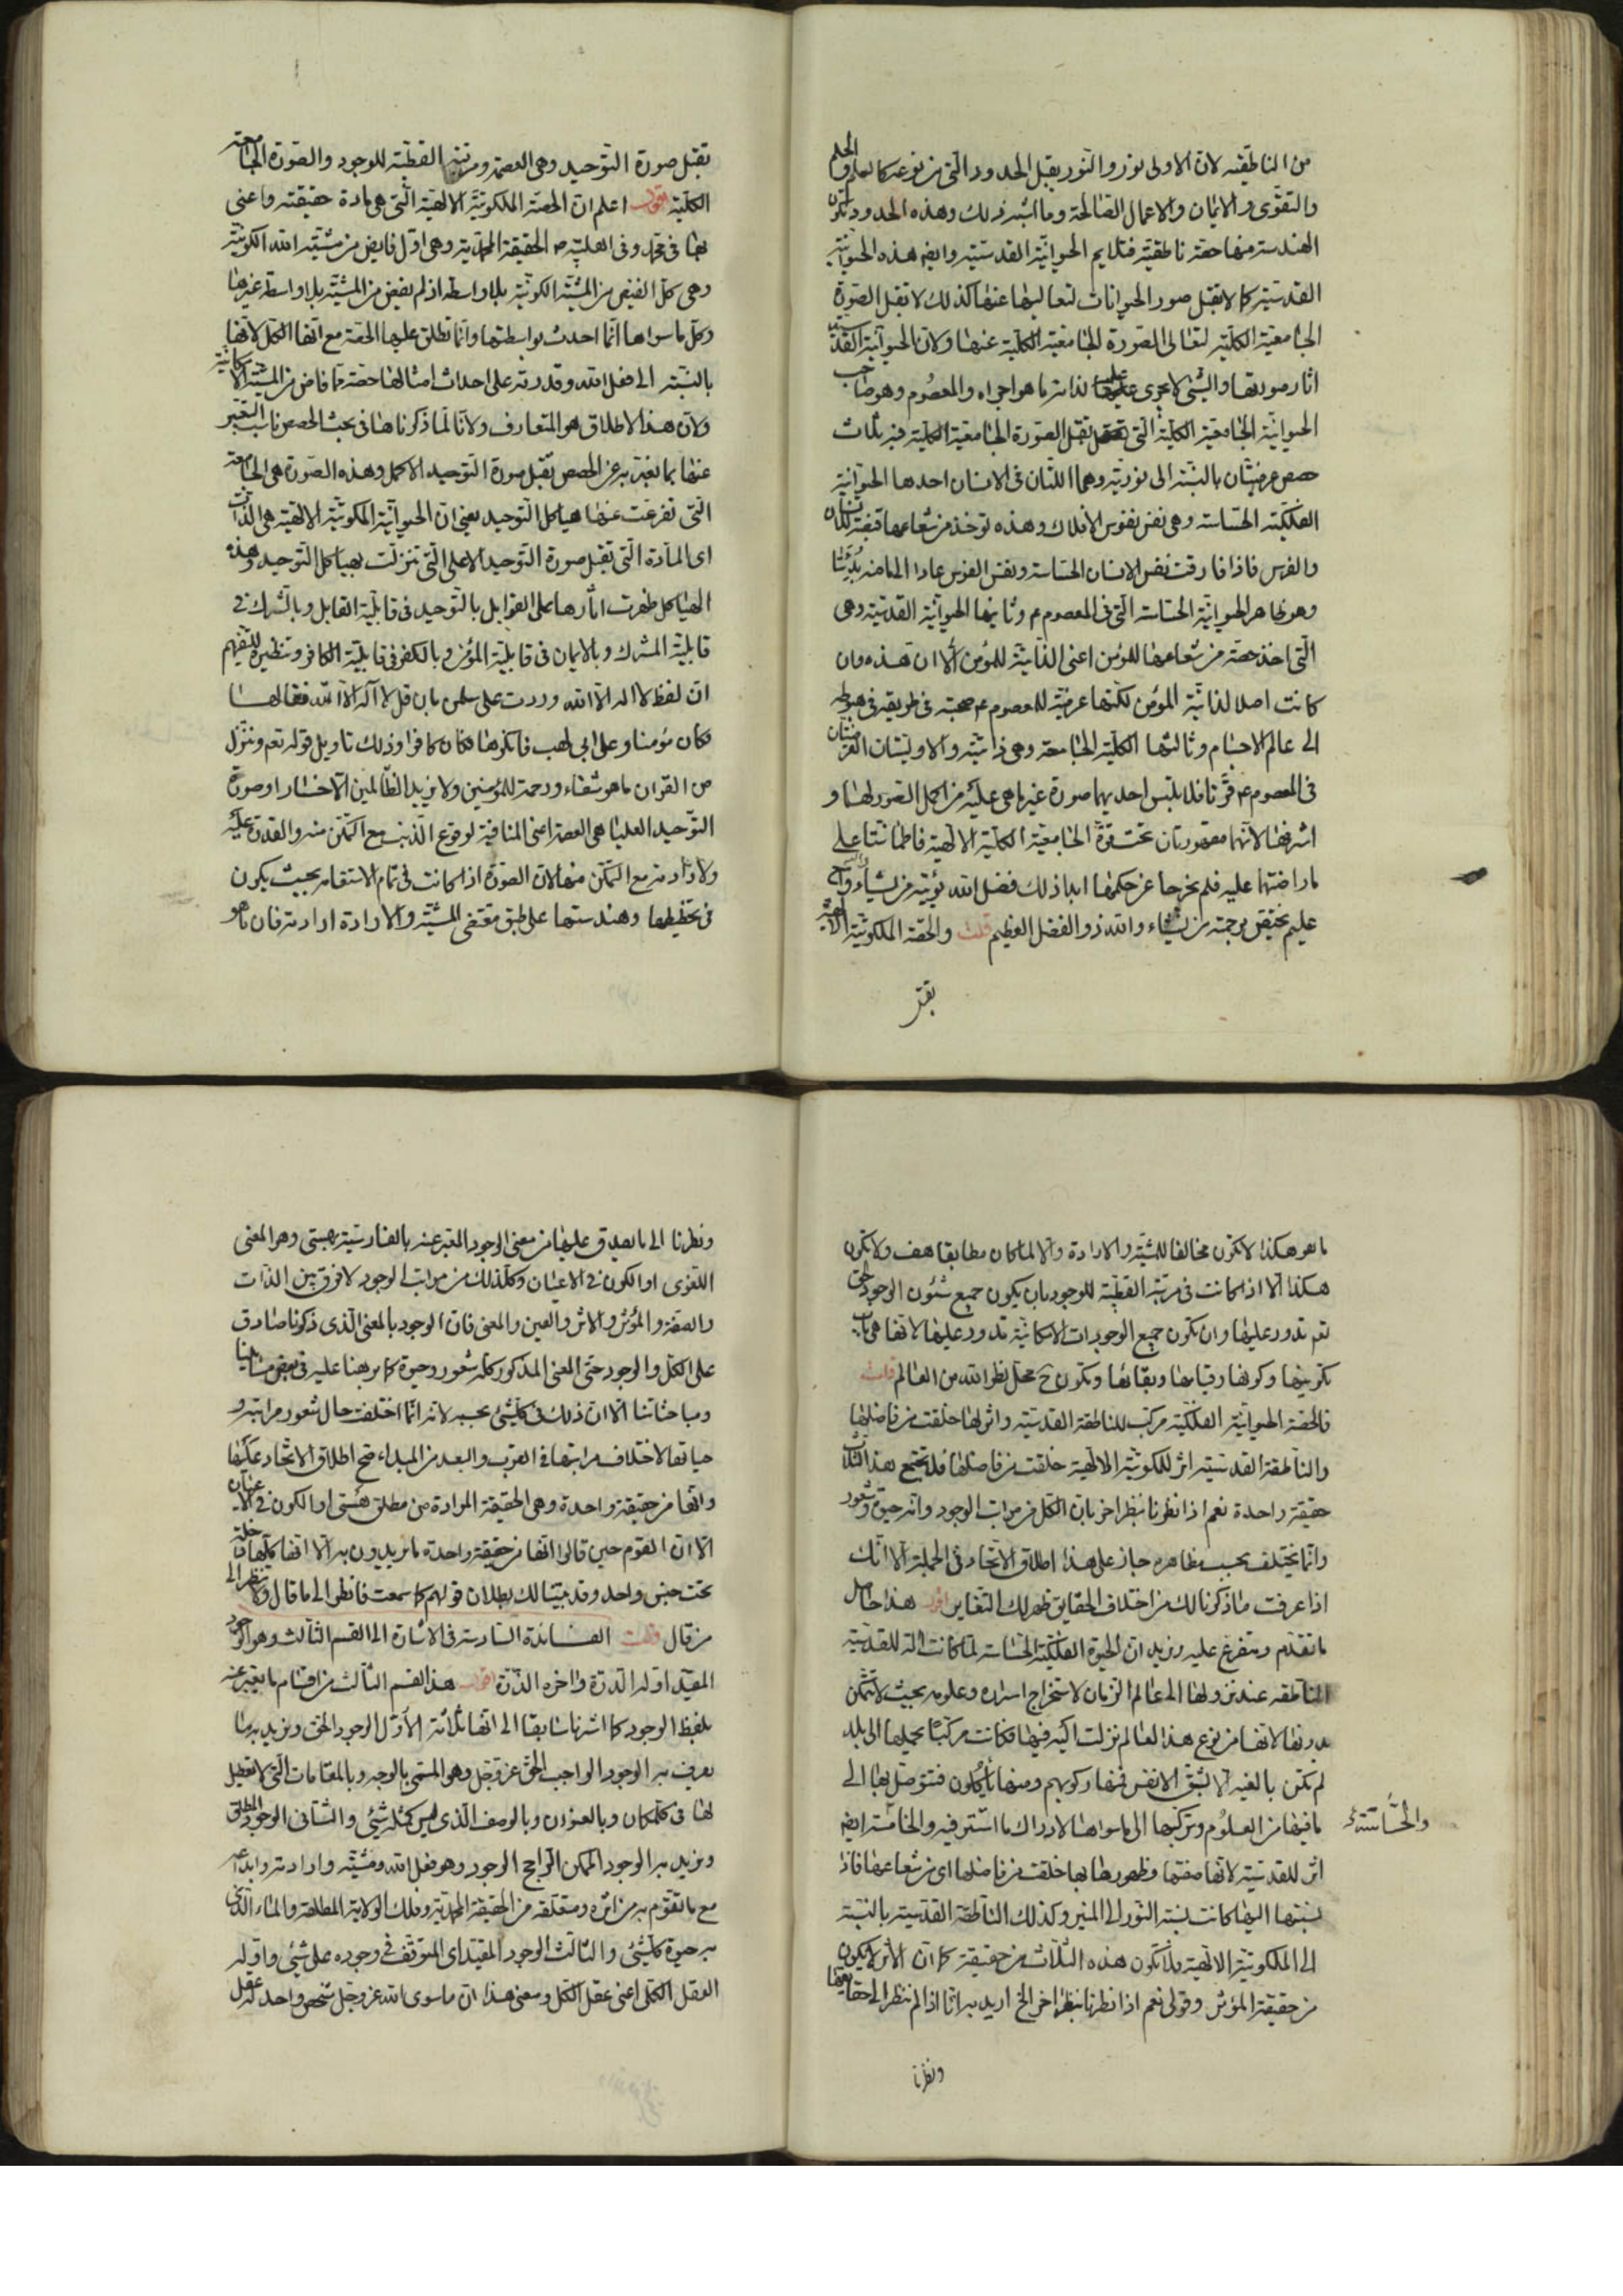 من الناطقية لان الاولى نور والنور يقبل الحدود التي من نوعه كالعلم والحلم
والتقوى والايمان والاعمال الصالحة وما اشبه ذلك وهذه الحدود تكون
الهندسة منها حصة ناطقية فتلايم الحيوانية القدسية وايضا هذه الحيوانية
القدسية كما لا تقبل صور الحيوانات لتعاليها عنها كذلك لا تقبل الصورة
الجامعية الكلية لتعالى الصورة الجامعية الكلية عنها ولان الحيوانية القدسية
اثار صورتها والشئ لا يجرى عليه لذاته ما هو اجراه والمعصوم وهو صاحب
الحيوانية الجامعية الكلية التي تقبل الصورة الجامعية الكلية فيه ثلاث
حصص عرضيتان بالنسبة الى نوريته وهما اللتان في الانسان احدها الحيوانية
الفلكية الحساسة وهي نفس نفوس الافلاك وهذه توخذ من شعاعها قبضة للانسان
والفرس فاذا فارقت نفس الانسان الحساسة ونفس الفرس عادا الى ما منه بدئتا
وهو ظاهر الحيوانية الحساسة التي في المعصوم ع وثانيها الحيوانية القدسية وهي
التي اخذ حصة من شعاعها للمؤمن اعنى الذاتية للمؤمن الا ان هذه وان
كانت اصلا لذاتية المؤمن لكنها عرضية للمعصوم ع صحبته في طريقه في هبوطه
الى عالم الاجسام وثالثها الكلية الجامعة وهي ذاتية والاوليتان العرضيتان
في المعصوم ع قرتا فلا يلبس احديهما صورة غير ما هي عليه من اكمل الصور لها و
اشرفها لانهما مقهورتان تحت قوة الجامعية الكلية الالهية فاطمانتا على
ما راضتهما عليه فلم يخرجا عن حكمها ابدا ذلك فضل الله يؤتيه من يشاء والله واسع
عليم يختص برحمته من يشاء والله ذو الفضل العظيم قلت والحصة الملكوتية الالهية
تقبل
تقبل صورة التوحيد وهي العصمة ومرتبته القطبية للوجود والصورة الجامعة
الكلية اقول اعلم ان الحصة الملكوتية الالهية التي هي مادة حقيقته واعنى
بها في محمد وفي اهل بيته ص الحقيقة المحمدية وهي اول فايض من مشية الله الكونية
وهي كل الفيض من المشية الكونية بلا واسطة اذ لم يفض من المشية بلا واسطة غيرها
وكل ما سواها انما احدث بواسطتها وانما تطلق عليها الحصة مع انها الكل لانها
بالنسبة الى فعل الله وقدرته على احداث امثالها حصة مما فاض من المشية الامكانية
ولان هذا الاطلاق هو المتعارف ولانا لما ذكرناها في بحث الحصص ناسب التعبير
عنها بما نعبر به عن الحصص تقبل صورة التوحيد الاكمل وهذه الصورة هي الجامعة
التي تفرعت عنها هياكل التوحيد يعنى ان الحيوانية الملكوتية الالهية هي الذات
اى المادة التي تقبل صورة التوحيد الاعلى التي تنزلت بهياكل التوحيد وهذه
الهياكل ظهرت اثارها على القوابل بالتوحيد في قابلية القابل وبالشرك في
قابلية المشرك وبالايمان في قابلية المؤمن وبالكفر في قابلية الكافر وتنظيره للتفهيم
ان لفظ لا اله الا الله وردت على سلمن بان قل لا اله الا الله فقالها
فكان مؤمنا وعلى ابى لهب فانكرها فكان كافرا وذلك تاويل قوله تعم وننزل
من القران ما هو شفاء ورحمة للمؤمنين ولا يزيد الظالمين الا خسارا وصورة
التوحيد العليا هي العصمة اعنى المنافية لوقوع الذنب مع التمكن منه والقدرة عليه
ولارادته مع التمكن منها لان الصورة اذا كانت في تمام الاستقامة بحيث يكون
في تخطيطها وهندستها على طبق مقتضى المشية والارادة ارادته فان ما هو
ما هو هكذا لا يكون مخالفا للمشية والارادة والا لما كان مطابقا هف ولا يكون
هكذا الا اذا كانت في مرتبة القطبية للوجود بان يكون جميع شئون الوجود الحق
تعم تدور عليها وان تكون جميع الوجودات الامكانية تدور عليها لانها هي باب
تكوينها وكونها وقيامها وبقائها وتكون ح محل نظر الله من العالم قلت
فالحصة الحيوانية الفلكية مركب للناطقة القدسية واثر لها خلقت من فاضلها
والناطقة القدسية اثر للملكوتية الالهية خلقت من فاضلها فلا يجتمع هذا الثلاث
حقيقة واحدة نعم اذا نظرنا بنظر اخر بان الكل من مراتب الوجود وانه حيوة وشعور
وانما يختلف بحسب مظاهره جاز على هذا اطلاق الاتحاد في الجملة الا انك
اذا عرفت ما ذكرنا لك من اختلاف الحقايق ظهر لك التغاير اقول هذا حاصل
ما تقدم ومتفرع عليه ونريد ان الحيوة الفلكية الحساسة لما كانت الة للقدسية
الناطقة عند نزولها الى عالم الزمان لاستخراج اسراره وعلومه بحيث لا تتمكن
بدونها لانها من نوع هذا العالم نزلت اليه فيها فكانت مركبا يحملها الى بلد
لم تكن بالغيه الا بشق الانفس فمنها ركوبهم ومنها يأكلون فتتوصل بها الى
ما فيها من العلوم وتركبها الى ما سواها لادراك ما استتر فيه والحاسة ايضا
والحساسة
اثر للقدسية لانها صفتها وظهورها بها خلقت من فاضلها اى من شعاعها فاذا
نسبتها اليها كانت نسبة النور الى المنير وكذلك الناطقة القدسية بالنسبة
الى الملكوتية الالهية فلا تكون هذه الثلاث من حقيقة كما ان الاثر لا يكون
من حقيقة المؤثر وقولى نعم اذا نظرنا بنظر اخر الخ اريد به انا اذا لم ننظر الى حقايقها
ونظرنا
ونظرنا الى ما يصدق عليها من معنى الوجود المعبر عنه بالفارسية بهستى وهو المعنى
اللغوى او الكون في الاعيان وكل ذلك من مراتب الوجود لا فرق بين الذات
والصفة والمؤثر والاثر والعين والمعنى فان الوجود بالمعنى الذى ذكرنا صادق
على الكل والوجود حتى المعنى المذكور كله شعور وحيوة كما برهنا عليه في بعض رسائلنا
ومباحثاتنا الا ان ذلك في كل شئ بحسبه لانه انما اختلفت حال شعور مراتبه و
حياتها لاختلاف مراتبها في القرب والبعد من المبداء فصح اطلاق الاتحاد عليها
وانها من حقيقة واحدة وهي الحقيقة المرادة من مطلق هستى او الكون في الاعيان
الا ان القوم حين قالوا انها من حقيقة واحدة ما يريدون به الا انها كلها داخلة
تحت جنس واحد وقد بينا لك بطلان قولهم كما سمعت فانظر الى ما قال ولا تنظر الى
من قال قلت الفائدة السادسة في الاشارة الى القسم الثالث وهو الوجود
المقيد اوله الدرة واخره الذرة اقول هذا القسم الثالث من اقسام ما يعبر عنه
بلفظ الوجود كما اشرنا سابقا الى انها ثلاثة الاول الوجود الحق ونريد به ما
يعرف به الوجود الواجب الحق عز وجل وهو المسمى بالوجه وبالمقامات التي لا تعطيل
لها في كل مكان وبالعنوان وبالوصف الذى ليس كمثله شئ والثانى الوجود المطلق
ونريد به الوجود الممكن الراجح الوجود وهو فعل الله ومشيته وارادته وابداعه
مع ما تقوم به من اثره ومتعلقه من الحقيقة المحمدية وفلك الولاية المطلقة والماء الذى
به حيوة كل شئ والثالث الوجود المقيد اى المتوقف في وجوده على شئ واوله
العقل الكلى اعنى عقل الكل ومعنى هذا ان ما سوى الله عز وجل شخص واحد له عقل